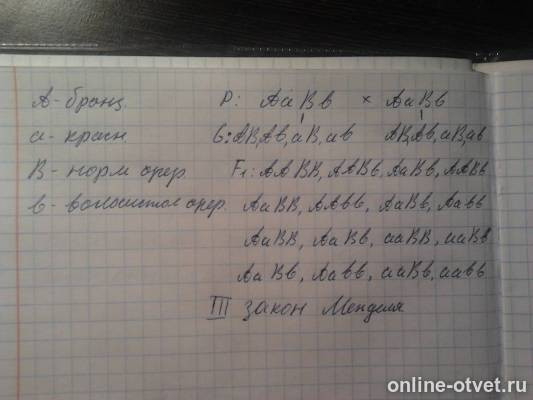 А - бронз. P: АаВв × АаВв
а - красн G: АВ, Ав, аВ, ав АВ, Ав, аВ, ав
В - норм опер F₁: ААВВ, ААВв, АаВв, ААВв
в - волосистое опер. АаВВ, ААвв, АаВв, Аавв
АаВВ, АаВв, ааВВ, ааВв
АаВв, Аавв, ааВв, аавв
III закон Менделя
online-otvet.ru